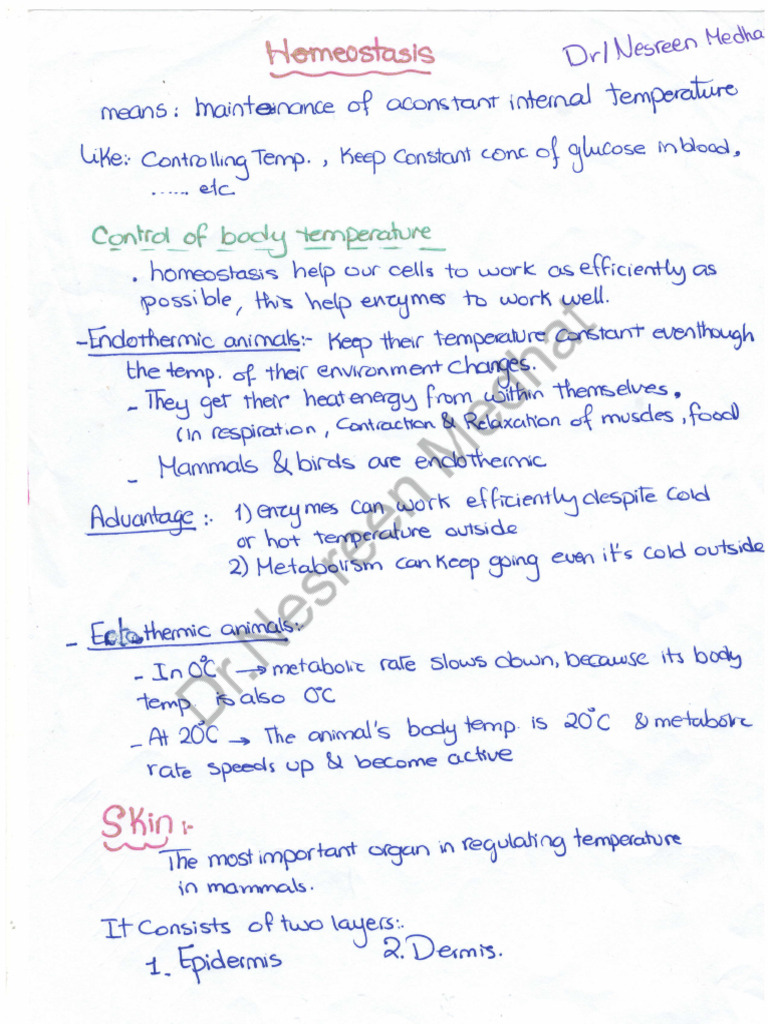 Homeostasis
Dr/Nesreen Medha
means: maintenance of aconstant internal temperature
Like:- Controlling Temp. , Keep Constant conc of glucose in blood,
...... etc
Control of body temperature
. homeostasis help our cells to work as efficiently as
possible, this help enzymes to work well.
- Endothermic animals:- Keep their temperature constant eventhough
the temp. of their environment changes.
- They get their heat energy from within themselves.
(in respiration, Contraction & Relaxation of muscles, food
- Mammals & birds are endothermic
Advantage:- 1) enzymes can work efficiently despite cold
or hot temperature outside
2) Metabolism can keep going even it's cold outside
- Ectothermic animals:-
- In 0°C → metabolic rate slows down, because its body
temp. is also 0°C
- At 20°C → The animal's body temp. is 20°C & metabolic
rate speeds up & become active
Skin:-
The most important organ in regulating temperature
in mammals.
It Consists of two layers:-
1. Epidermis 2. Dermis.
Dr.Nesreen Medhat